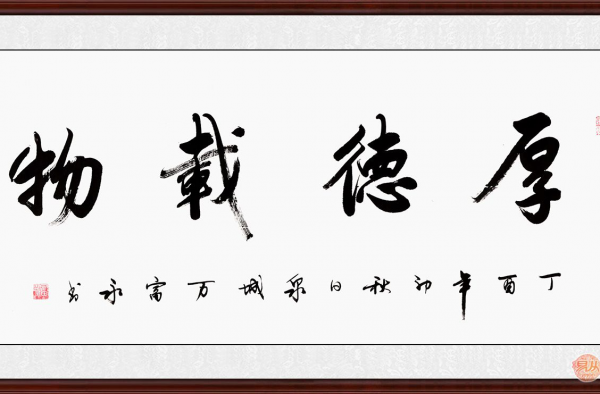 厚德載物
丁酉年初秋日泉城万富永书
易从